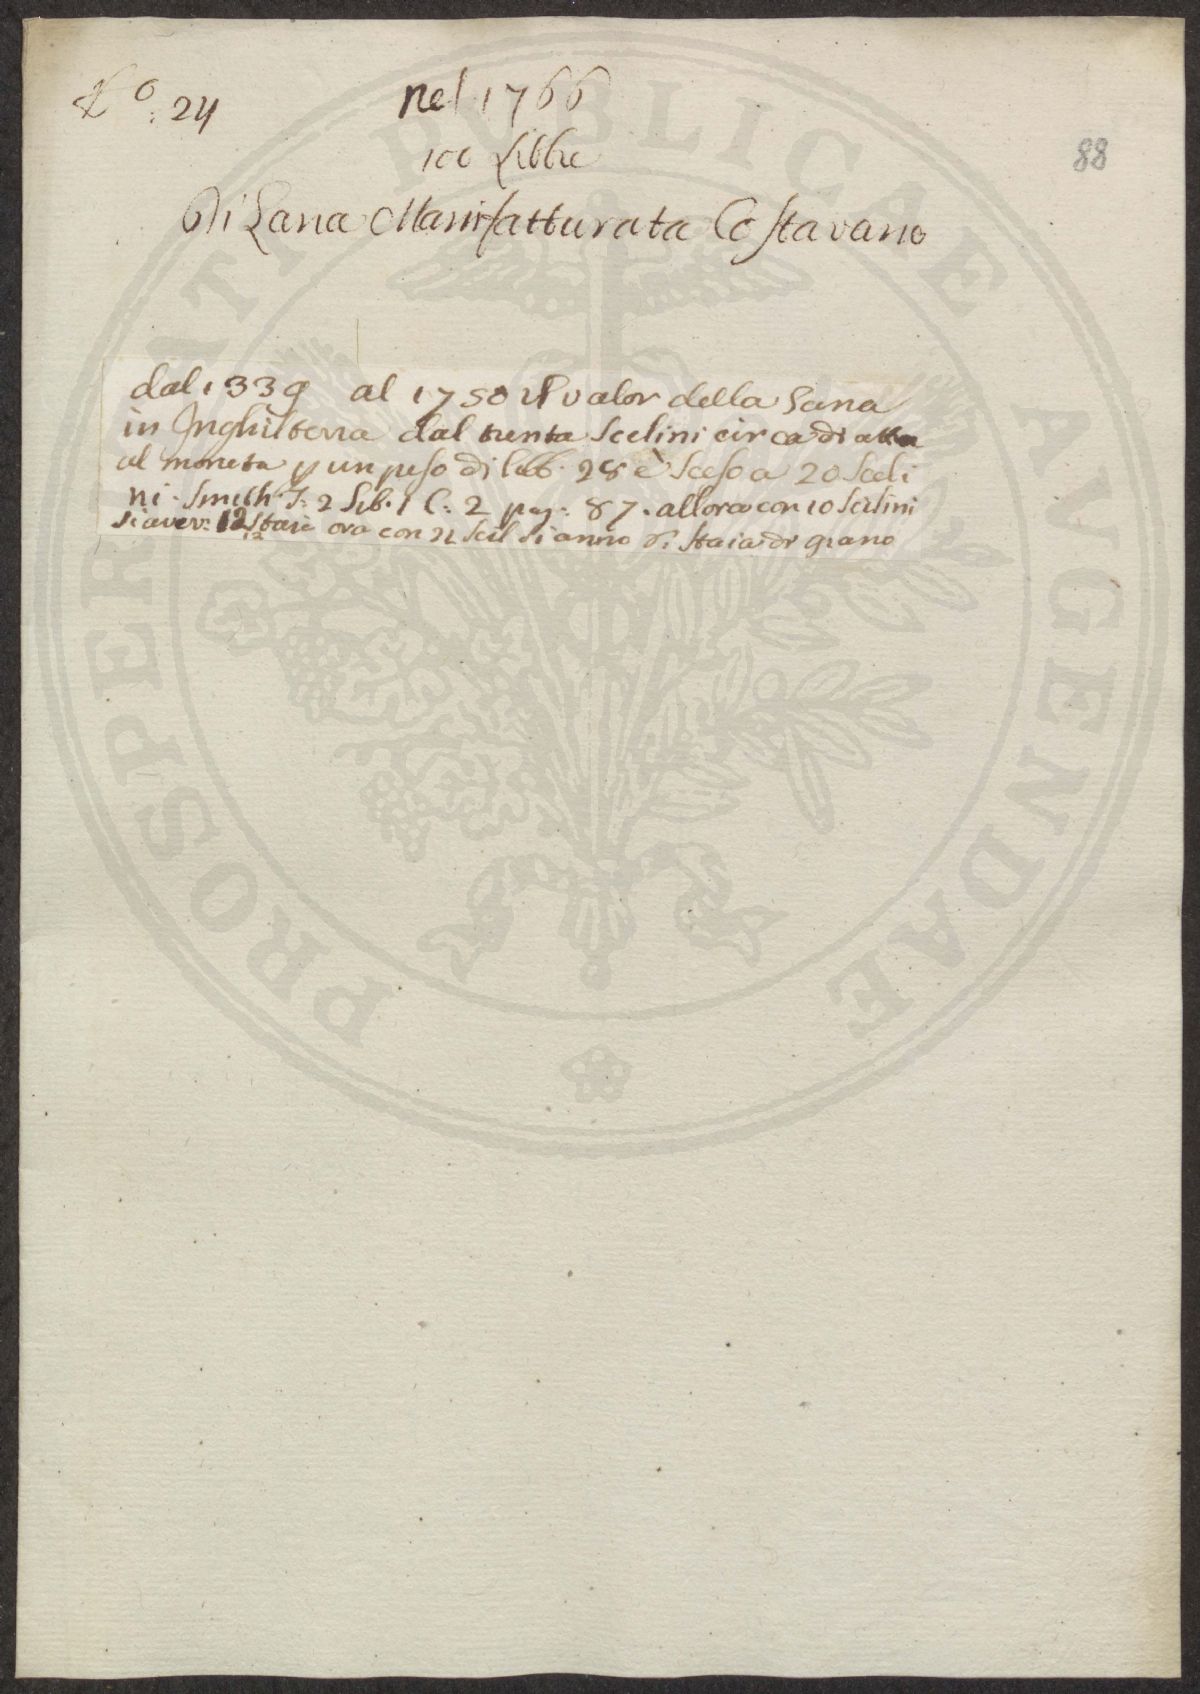 N.o 24
nel 1766
88
100 Libbre
Di Lana Manifatturata Costavano
dal 1339 al 1750 il valor della Lana
in Inghilterra dal trenta Scelini circa di
al moneta p un peso di lib. 28 è sceso a 20 Sceli
ni. Smith T. 2 Lib. 1 C. 2 pag. 87. allora con 10 Scilini
si aver. 12 staie ora con 21 Scil si anno 6. staia di grano
12
PROSPERITATI PVBLICAE AVGENDAE